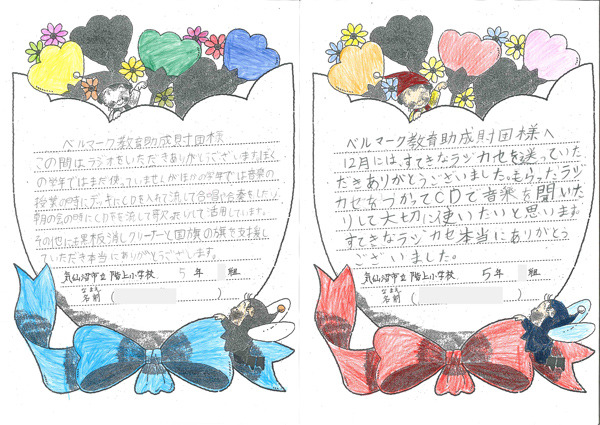 ベルマーク教育助成財団様
この間はラジオをいただきありがとうございます。ぼく
の学年ではまだ使っていませんがほかの学年では音楽の
授業の時にデッキにCDを入れて流して合唱や合奏をしたり
朝の会の時にCDを流して歌ったりして活用しています。
その他にも黒板消しクリーナーと国旗の旗を支援し
ていただき本当にありがとうございます。
気仙沼市立 階上小学校 5年 組
なまえ
名前 ( )
ベルマーク教育助成財団様へ
12月には、すてきなラジカセを送っていた
だきありがとうございました。もらったラジ
カセをつかってCDで音楽を聞いた
りして大切に使いたいと思います。
すてきなラジカセ本当にありがとう
ございました。
気仙沼市立 階上小学校 5年 組
なまえ
名前 ( )